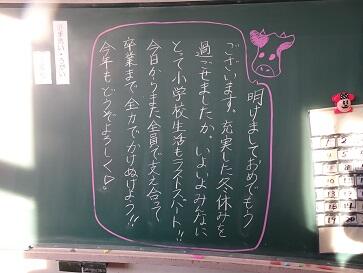 明けましておめでとう
ございます。充実した冬休みを
過ごせましたか。いよいよみなに
とって小学校生活もラストスパート!!
今日からまた全員で支え合って
卒業まで全力でかけぬけよう!!
今年もどうぞよろしく♡